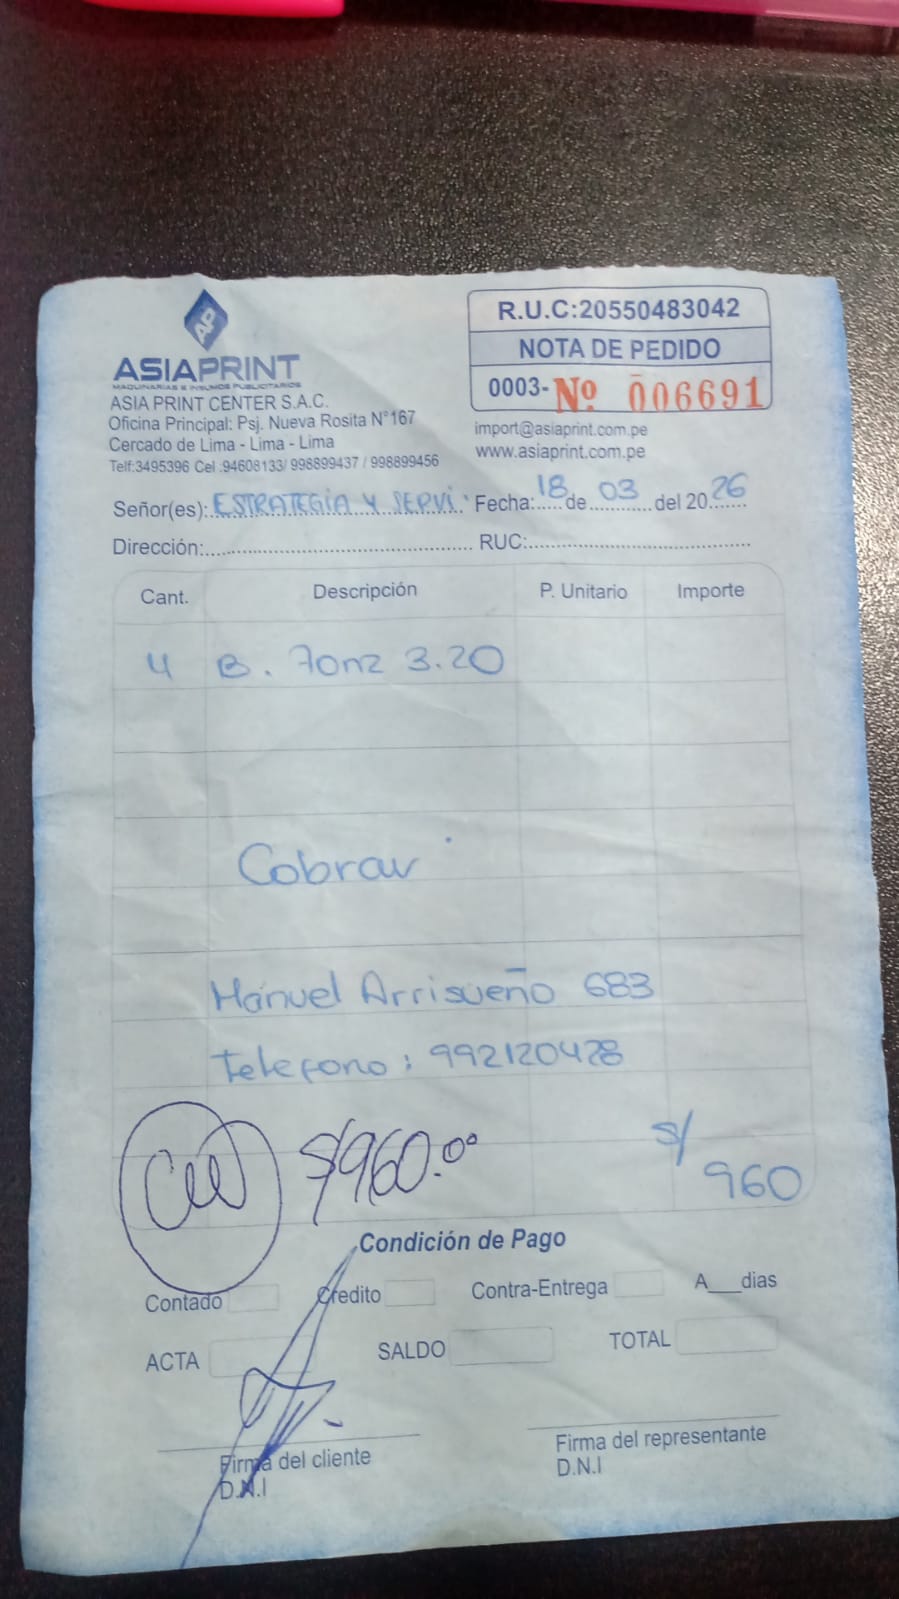 AP
ASIAPRINT
MAQUINARIAS E INSUMOS PUBLICITARIOS
ASIA PRINT CENTER S.A.C.
Oficina Principal: Psj. Nueva Rosita N°167
Cercado de Lima - Lima - Lima
Telf:3495396 Cel :94608133/ 998899437 / 998899456
R.U.C:20550483042
NOTA DE PEDIDO
0003-Nº 006691
import@asiaprint.com.pe
www.asiaprint.com.pe
Señor(es): ESTRATEGIA Y SERVI. Fecha: 18 de 03 del 2026
Dirección: RUC:
Cant. Descripción P. Unitario Importe
4 B. 70nz 3.20
Cobrar
Manuel Arrisueño 683
telefono: 992120428
S/960.00
S/ 960
Condición de Pago
Contado Credito Contra-Entrega A___dias
ACTA SALDO TOTAL
Firma del cliente Firma del representante
D.N.I D.N.I